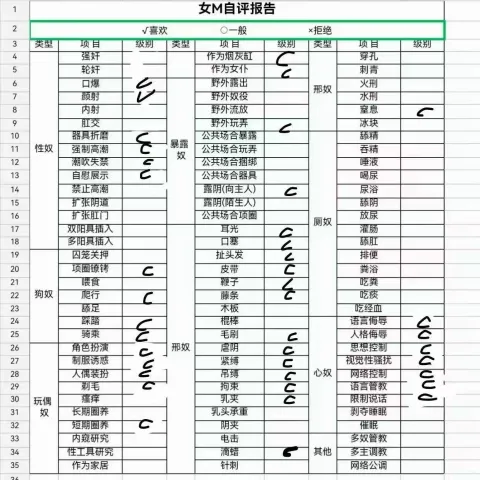 1 女M自评报告
2 √喜欢 ○一般 ×拒绝
3 类型 项目 级别 类型 项目 级别 类型 项目 级别
4 强奸 作为烟灰缸 穿孔
5 轮奸 作为女仆 刺青
6 口爆 野外露出 火刑
7 颜射 野外奴役 水刑
8 内射 野外流放 窒息
9 肛交 野外玩弄 冰块
10 器具折磨 公共场合暴露 舔精
11 强制高潮 公共场合玩弄 吞精
12 潮吹失禁 公共场合捆绑 唾液
13 自慰展示 公共场合器具 喝尿
14 禁止高潮 露阴(向主人) 尿浴
15 扩张阴道 露阴(陌生人) 舔阴
16 扩张肛门 公共场合项圈 放尿
性奴 暴露奴 邢奴 厕奴
17 双阳具插入 耳光 灌肠
18 多阳具插入 口塞 舔肛
19 囚笼关押 扯头发 排便
20 项圈镣铐 皮带 粪浴
21 喂食 鞭子 吃粪
22 爬行 藤条 吃痰
23 舔足 木板 吃经血
24 踩踏 棍棒 语言侮辱
25 骑乘 毛刷 人格侮辱
狗奴 邢奴
26 角色扮演 虐阴 思想控制
27 制服诱惑 紧缚 视觉性骚扰
28 人偶装扮 吊缚 网络控制
29 剃毛 拘束 语言管教
30 瘙痒 乳夹 限制说话
31 长期圈养 乳头承重 剥夺睡眠
32 短期圈养 阴夹 催眠
33 内窥研究 电击 多奴管教
34 性工具研究 滴蜡 多主调教
35 作为家居 针刺 网络公调
玩偶奴 心奴 其他